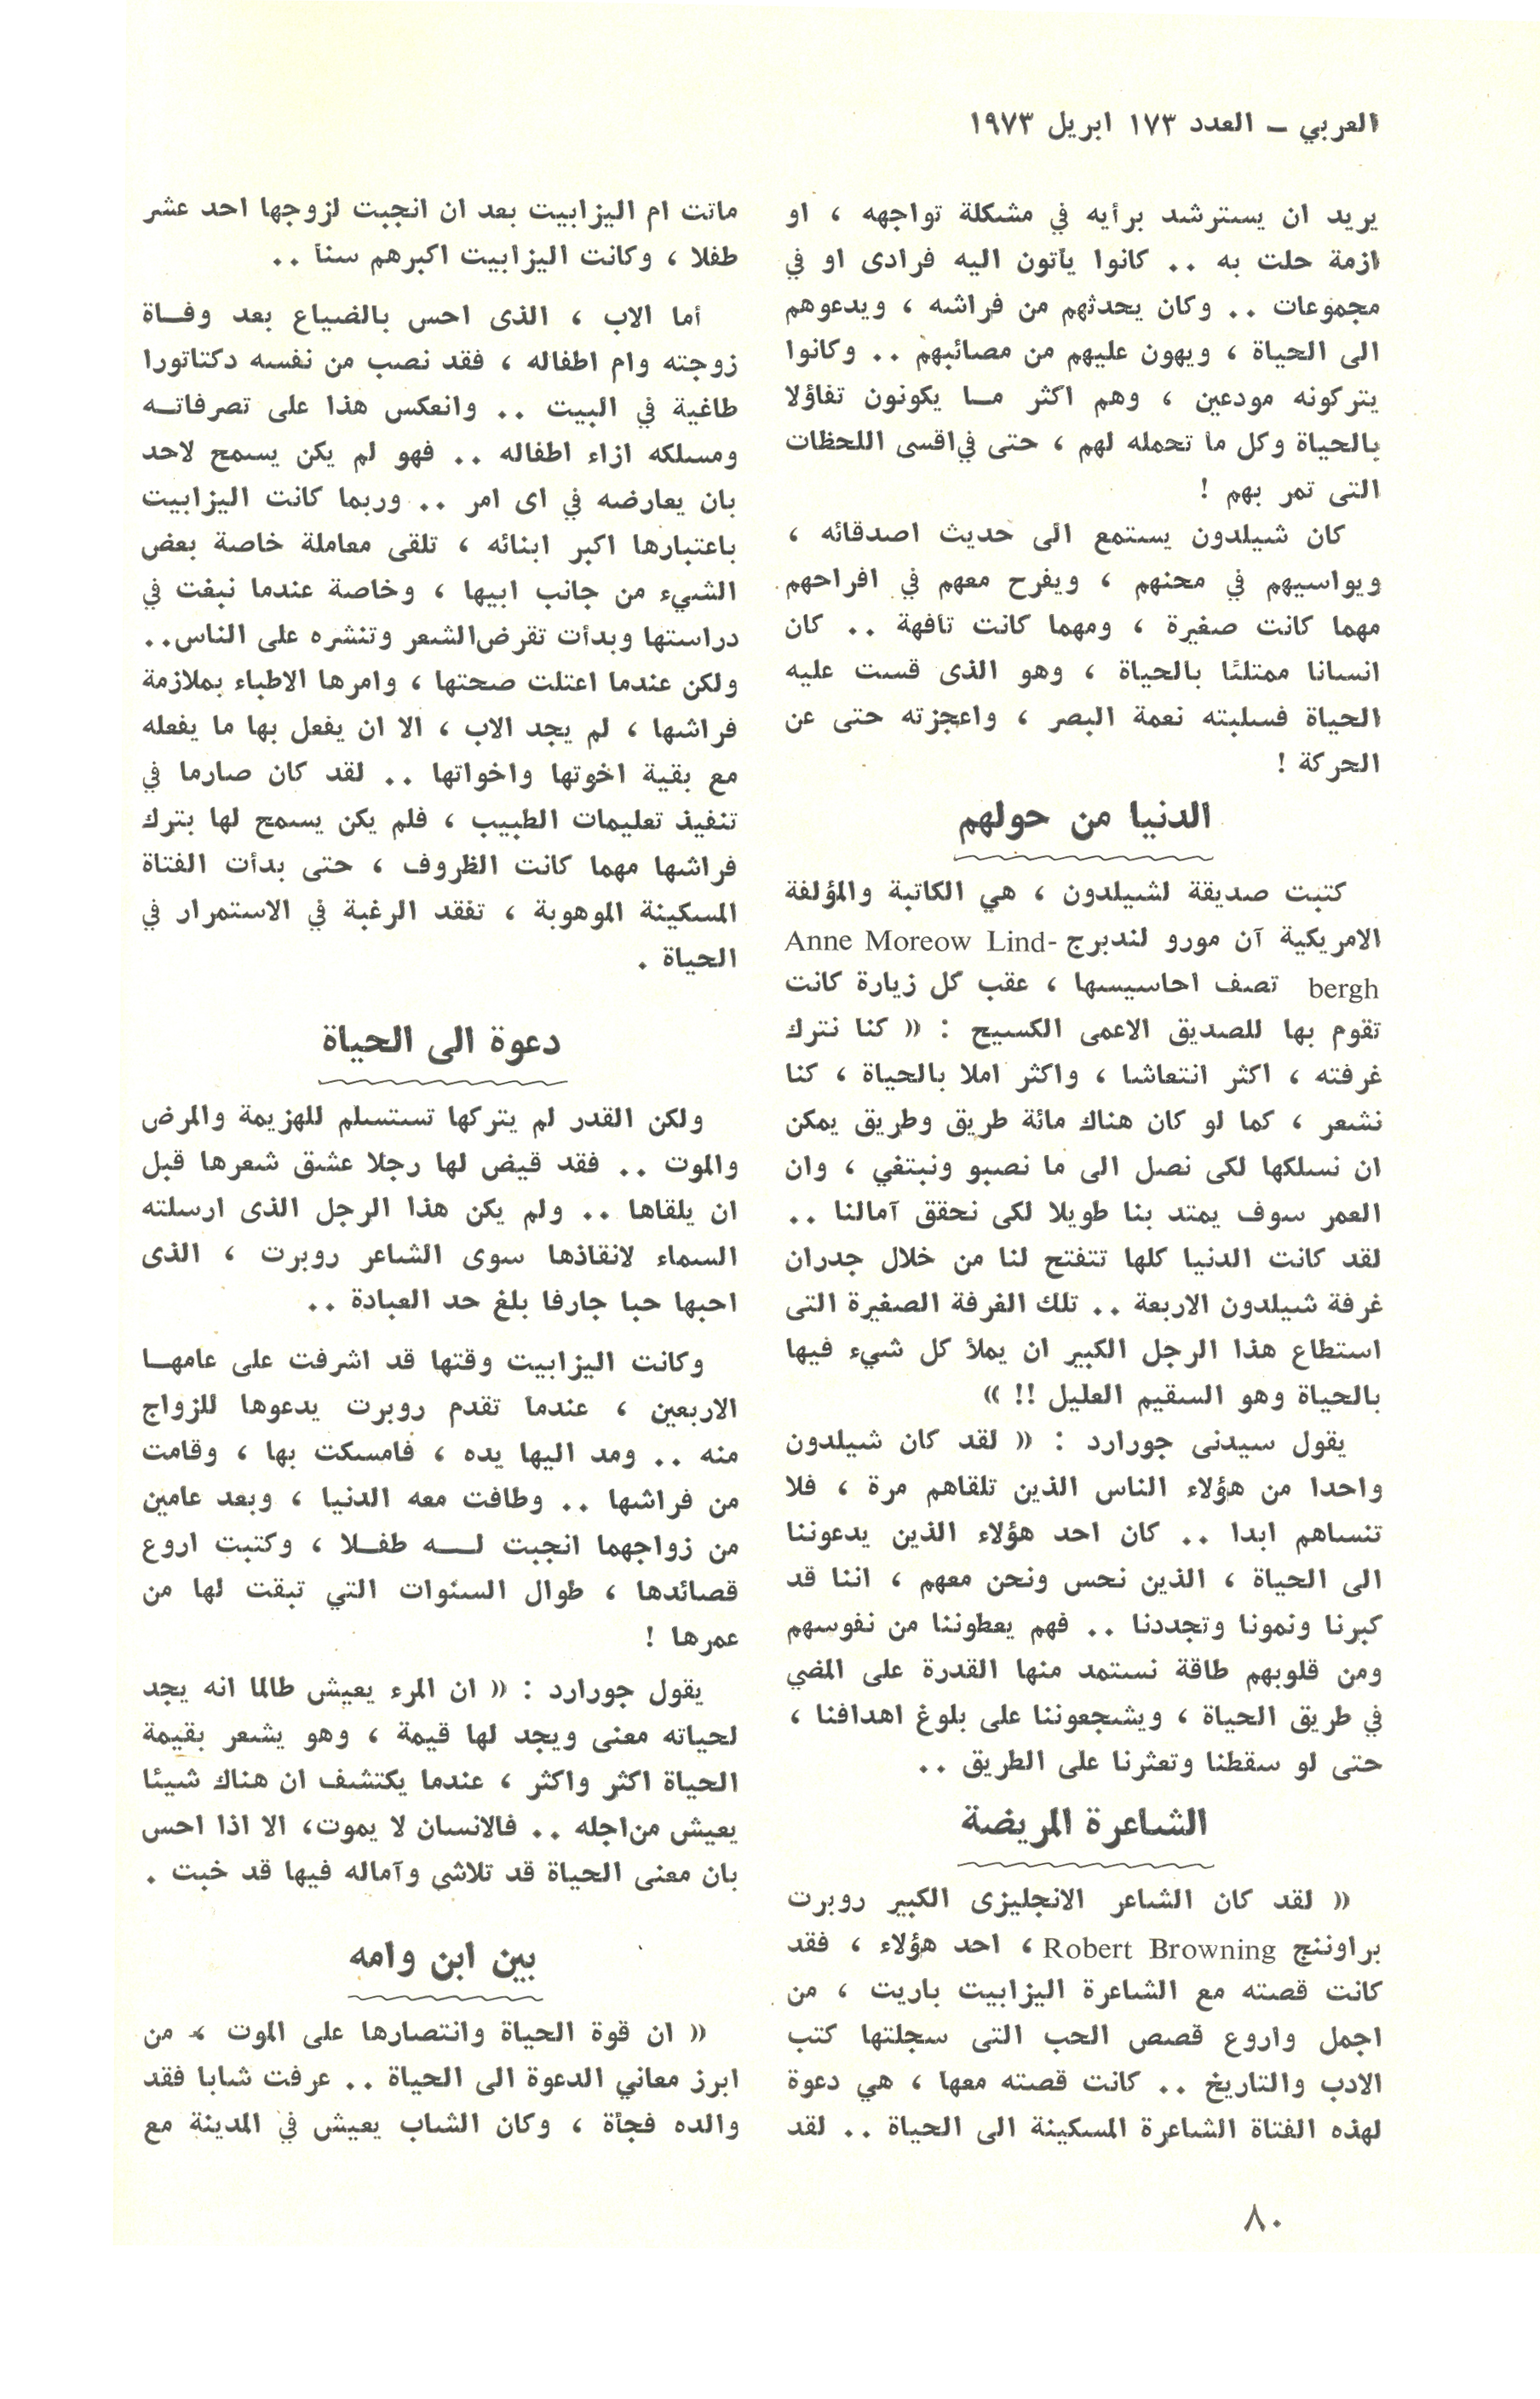 العربي – العدد ١٧٣ ابريل ١٩٧٣
يريد ان يسترشد برأيه في مشكلة تواجهه ، او
ازمة حلت به .. كانوا يأتون اليه فرادى او في
مجموعات .. وكان يحدثهم من فراشه ، ويدعوهم
الى الحياة ، ويهون عليهم من مصائبهم .. وكانوا
يتركونه مودعين ، وهم اكثر مـا يكونون تفاؤلا
بالحياة وكل ما تحمله لهم ، حتى في اقسى اللحظات
التى تمر بهم !
كان شيلدون يستمع الى حديث اصدقائه ،
ويواسيهم في محنهم ، ويفرح معهم في افراحهم
مهما كانت صغيرة ، ومهما كانت تافهة .. كان
انسانا ممتلئا بالحياة ، وهو الذى قست عليه
الحياة فسلبته نعمة البصر ، واعجزته حتى عن
الحركة !
الدنيا من حولهم
كتبت صديقة لشيلدون ، هي الكاتبة والمؤلفة
الامريكية آن مورو لندبرج Anne Moreow Lind-
bergh تصف احاسيسها ، عقب كل زيارة كانت
تقوم بها للصديق الاعمى الكسيح : « كنا نترك
غرفته ، اكثر انتعاشا ، واكثر املا بالحياة ، كنا
نشعر ، كما لو كان هناك مائة طريق وطريق يمكن
ان نسلكها لكى نصل الى ما نصبو ونبتغي ، وان
العمر سوف يمتد بنا طويلا لكى نحقق آمالنا ..
لقد كانت الدنيا كلها تتفتح لنا من خلال جدران
غرفة شيلدون الاربعة .. تلك الغرفة الصغيرة التى
استطاع هذا الرجل الكبير ان يملأ كل شيء فيها
بالحياة وهو السقيم العليل !! »
يقول سيدنى جورارد : « لقد كان شيلدون
واحدا من هؤلاء الناس الذين تلقاهم مرة ، فلا
تنساهم ابدا .. كان احد هؤلاء الذين يدعوننا
الى الحياة ، الذين نحس ونحن معهم ، اننا قد
كبرنا ونمونا وتجددنا .. فهم يعطوننا من نفوسهم
ومن قلوبهم طاقة نستمد منها القدرة على المضي
في طريق الحياة ، ويشجعوننا على بلوغ اهدافنا ،
حتى لو سقطنا وتعثرنا على الطريق ..
الشاعرة المريضة
« لقد كان الشاعر الانجليزى الكبير روبرت
براوننج Robert Browning ، احد هؤلاء ، فقد
كانت قصته مع الشاعرة اليزابيت باريت ، من
اجمل واروع قصص الحب التى سجلتها كتب
الادب والتاريخ .. كانت قصته معها ، هي دعوة
لهذه الفتاة الشاعرة المسكينة الى الحياة .. لقد
ماتت ام اليزابيت بعد ان انجبت لزوجها احد عشر
طفلا ، وكانت اليزابيت اكبرهم سنا ..
أما الاب ، الذى احس بالضياع بعد وفـاة
زوجته وام اطفاله ، فقد نصب من نفسه دكتاتورا
طاغية في البيت .. وانعكس هذا على تصرفاتـه
ومسلكه ازاء اطفاله .. فهو لم يكن يسمح لاحد
بان يعارضه في اى امر .. وربما كانت اليزابيت
باعتبارها اكبر ابنائه ، تلقى معاملة خاصة بعض
الشيء من جانب ابيها ، وخاصة عندما نبغت في
دراستها وبدأت تقرض الشعر وتنشره على الناس..
ولكن عندما اعتلت صحتها ، وامرها الاطباء بملازمة
فراشها ، لم يجد الاب ، الا ان يفعل بها ما يفعله
مع بقية اخوتها واخواتها .. لقد كان صارما في
تنفيذ تعليمات الطبيب ، فلم يكن يسمح لها بترك
فراشها مهما كانت الظروف ، حتى بدأت الفتاة
المسكينة الموهوبة ، تفقد الرغبة في الاستمرار في
الحياة .
دعوة الى الحياة
ولكن القدر لم يتركها تستسلم للهزيمة والمرض
والموت .. فقد قيض لها رجلا عشق شعرها قبل
ان يلقاها .. ولم يكن هذا الرجل الذى ارسلته
السماء لانقاذها سوى الشاعر روبرت ، الذى
احبها حبا جارفا بلغ حد العبادة ..
وكانت اليزابيت وقتها قد اشرفت على عامهـا
الاربعين ، عندما تقدم روبرت يدعوها للزواج
منه .. ومد اليها يده ، فامسكت بها ، وقامت
من فراشها .. وطافت معه الدنيا ، وبعد عامين
من زواجهما انجبت لــه طفـلا ، وكتبت اروع
قصائدها ، طوال السنوات التي تبقت لها من
عمرها !
يقول جورارد : « ان المرء يعيش طالما انه يجد
لحياته معنى ويجد لها قيمة ، وهو يشعر بقيمة
الحياة اكثر واكثر ، عندما يكتشف ان هناك شيئا
يعيش من اجله .. فالانسان لا يموت، الا اذا احس
بان معنى الحياة قد تلاشى وآماله فيها قد خبت .
بين ابن وامه
« ان قوة الحياة وانتصارها على الموت ، من
ابرز معاني الدعوة الى الحياة .. عرفت شابا فقد
والده فجأة ، وكان الشاب يعيش في المدينة مع
٨٠